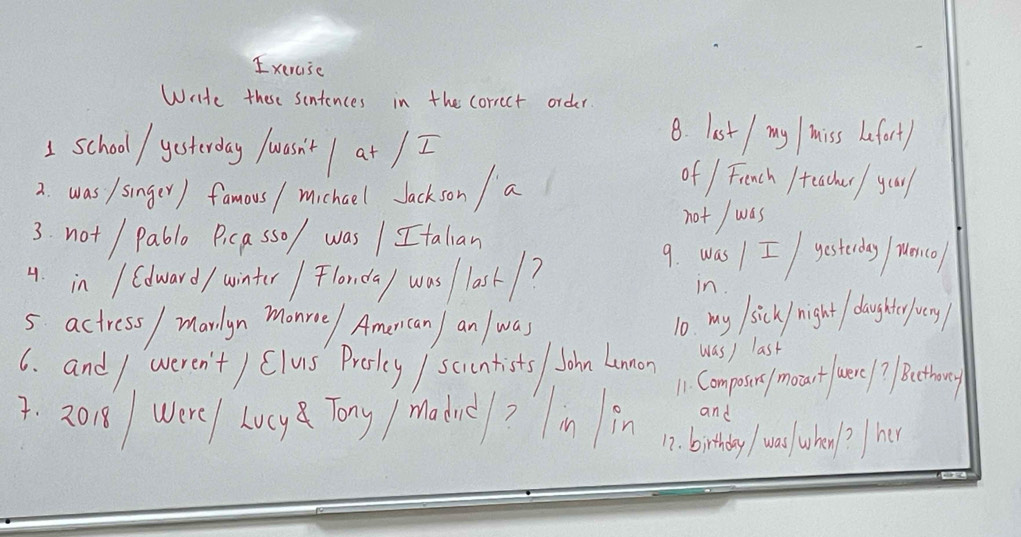 Exercise
Write these sentences in the correct order.
1 school / yesterday / wasn't / at / I
2. was / singer / famous / Michael Jackson / a
3. not / Pablo Picasso / was / Italian
4. in / Edward / winter / Florida / was / last / ?
5. actress / Marilyn Monroe / American / an / was
6. and / weren't / Elvis Presley / scientists / John Lennon
7. 2018 / Were / Lucy & Tony / Madrid / ? / in / in
8. last / my / miss Lefort /
of / French / teacher / year /
not / was
9. was / I / yesterday / Mexico /
in.
10. my / sick / night / daughter / very /
was / last
11. Composers / mozart / were / ? / Beethoven
and
12. birthday / was / when / ? / her